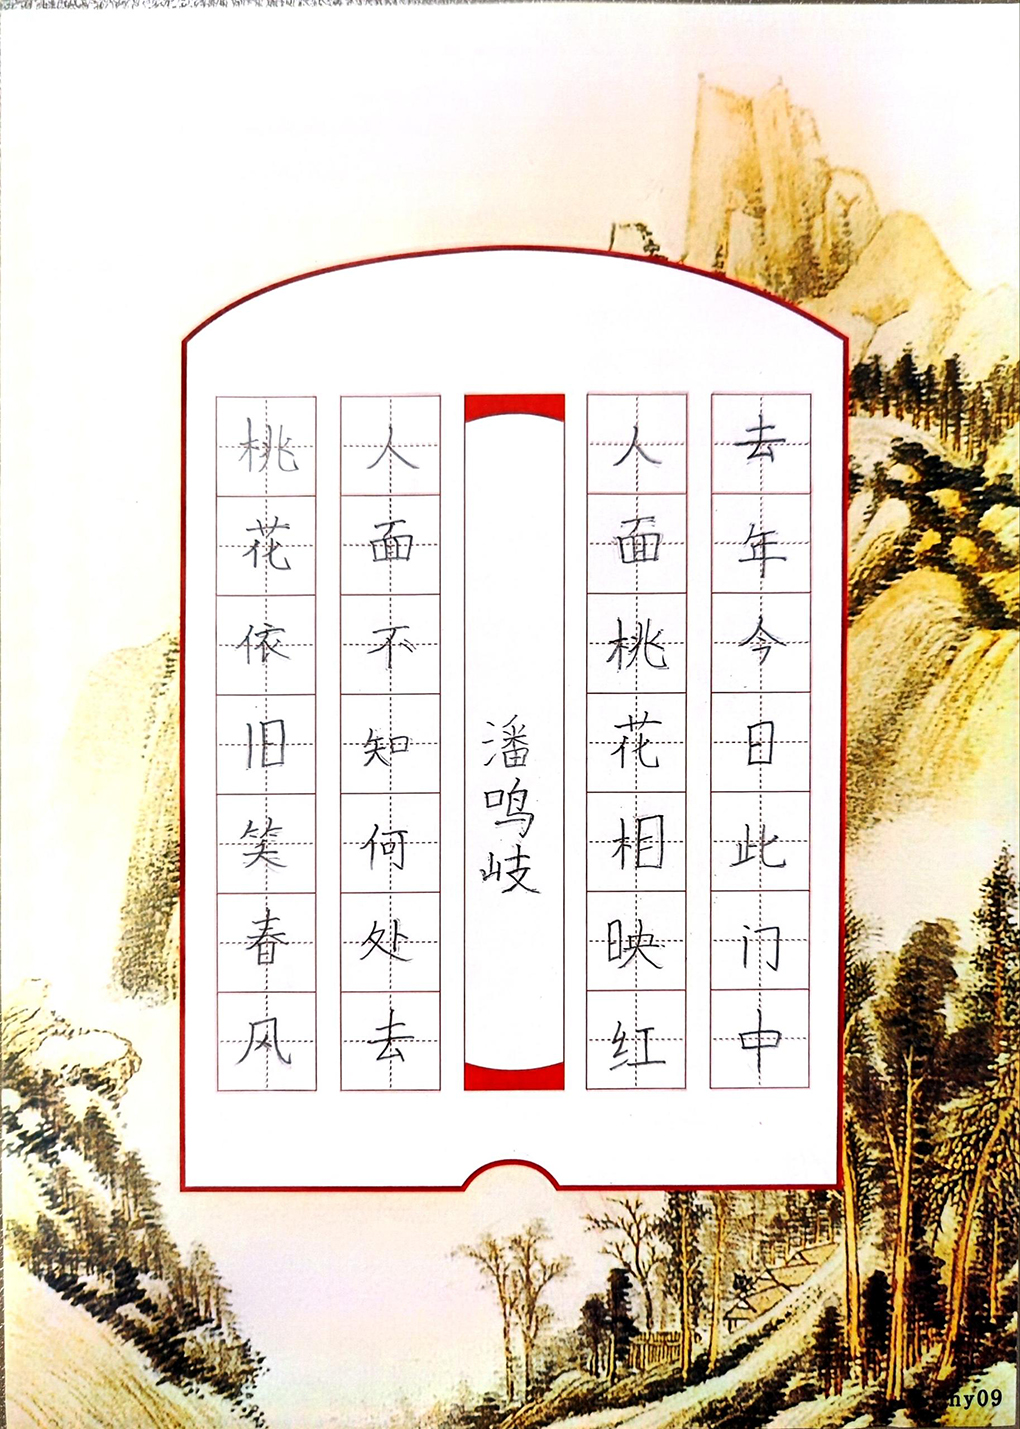 去年今日此门中
人面桃花相映红
潘鸣岐
人面不知何处去
桃花依旧笑春风
hy09